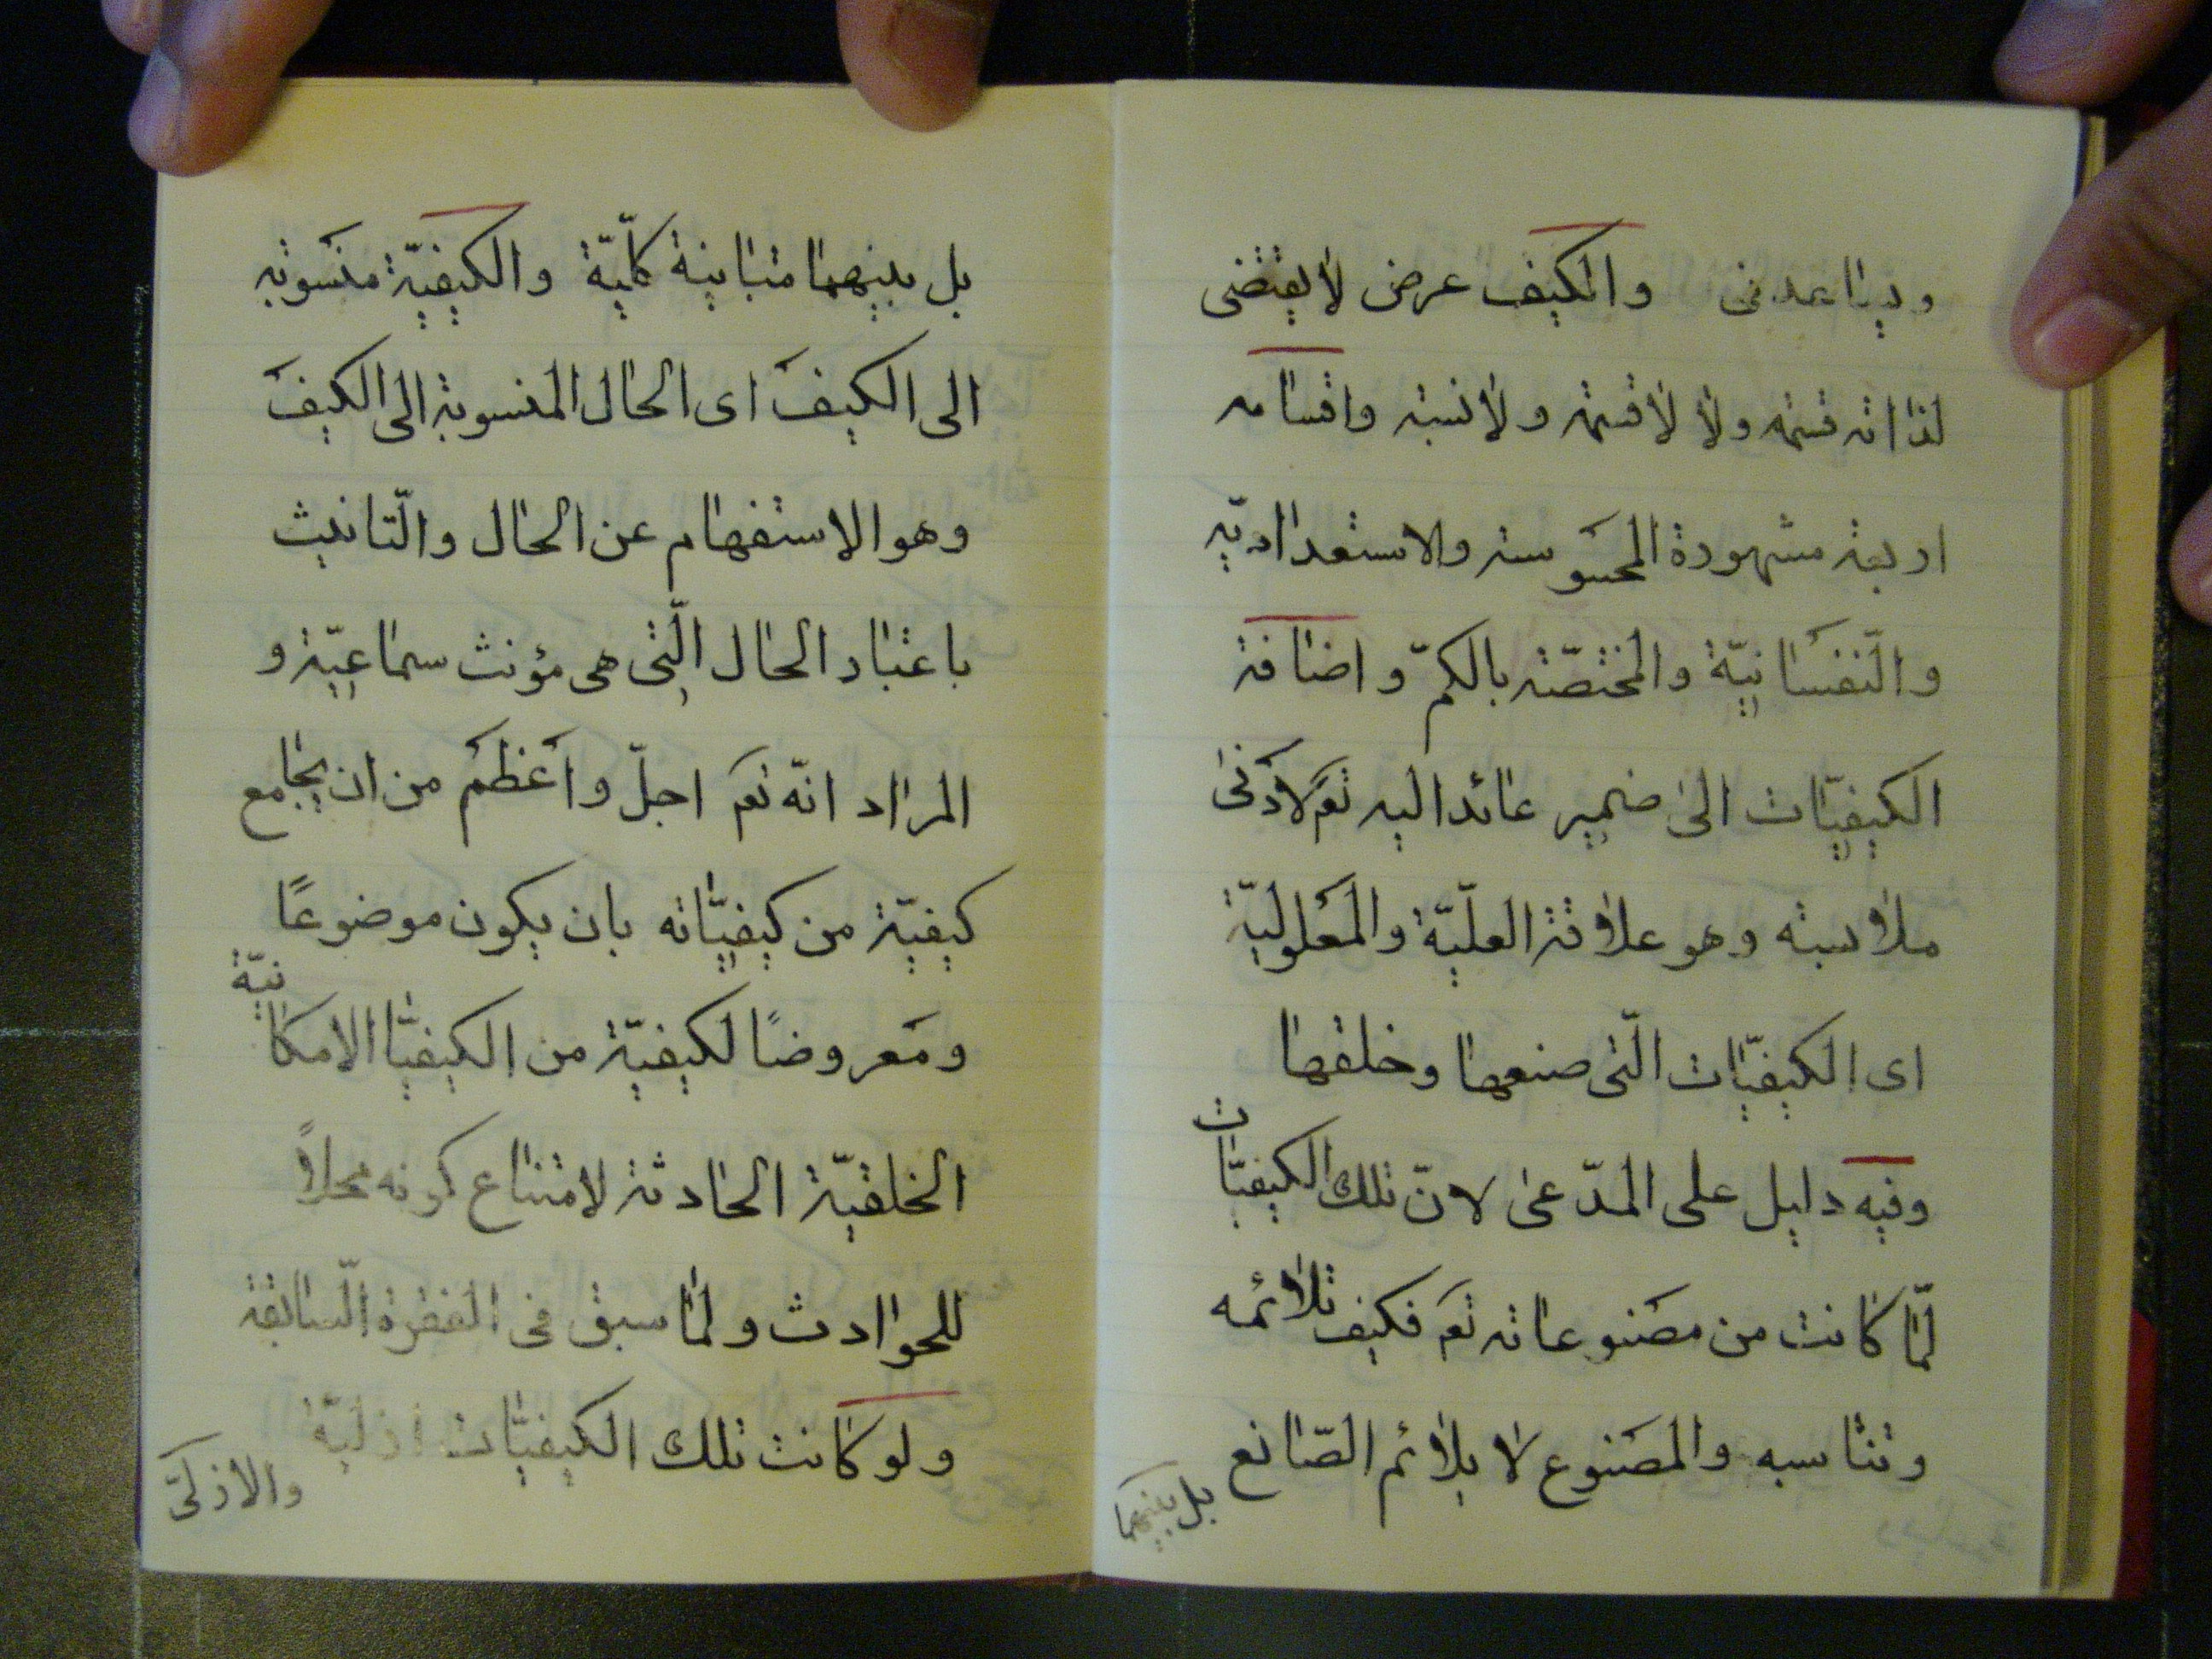 ويباعدنى والكيف عرض لا يقتضى
لذاته قسمة ولا لا قسمة ولا نسبة واقسامه
اربعة مشهورة المحسوسة والاستعدادية
والنّفسانيّة والمختصّة بالكمّ واضافة
الكيفيّات الى ضمير عائد اليه تعم لادنى
ملابسته وهو علاقة العليّة والمعلوليّة
اى الكيفيّات الّتى صنعها وخلقها
وفيه دليل على المدّعى لانّ تلك الكيفيّات
لمّا كانت من مصنوعاته تعم فكيف تلائمه
وتناسبه والمصنوع لا يلائم الصّانع
بل بينهما
بل بينهما مباينة كلّيّة والكيفيّة منسوبة
الى الكيف اى الحال المنسوبة الى الكيف
وهو الاستفهام عن الحال والتّانيث
باعتبار الحال الّتى هى مؤنث سماعيّة و
المراد انّه تعم اجلّ واعظم من ان يجامع
كيفيّة من كيفيّاته بان يكون موضوعًا
ومعروضًا لكيفيّة من الكيفيّا الامكانيّة
الخلقيّة الحادثة لامتناع كونه محلاً
للحوادث ولما سبق فى الفقرة السّابقة
ولو كانت تلك الكيفيّات ازليّة
والازلىّ